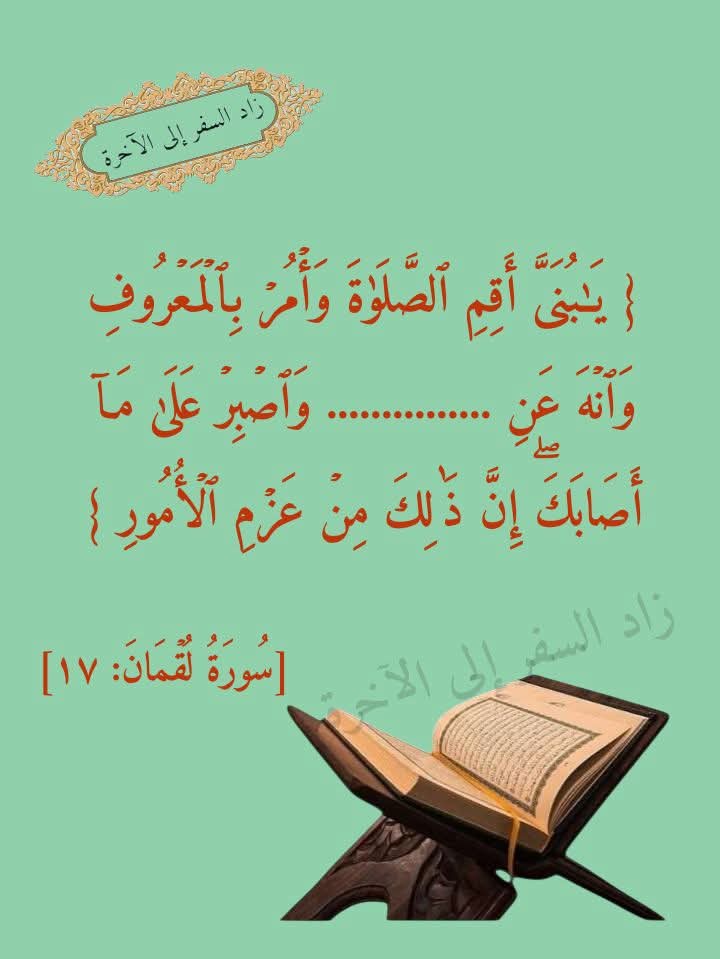 زاد السفر إلى الآخرة
{ يَـٰبُنَىَّ أَقِمِ ٱلصَّلَوٰةَ وَأۡمُرۡ بِٱلۡمَعۡرُوفِ
وَٱنۡهَ عَنِ ............... وَٱصۡبِرۡ عَلَىٰ مَآ
أَصَابَكَۖ إِنَّ ذَٰلِكَ مِنۡ عَزۡمِ ٱلۡأُمُورِ }
زاد السفر إلى الآخرة
[سُورَةُ لُقۡمَانَ: ١٧]